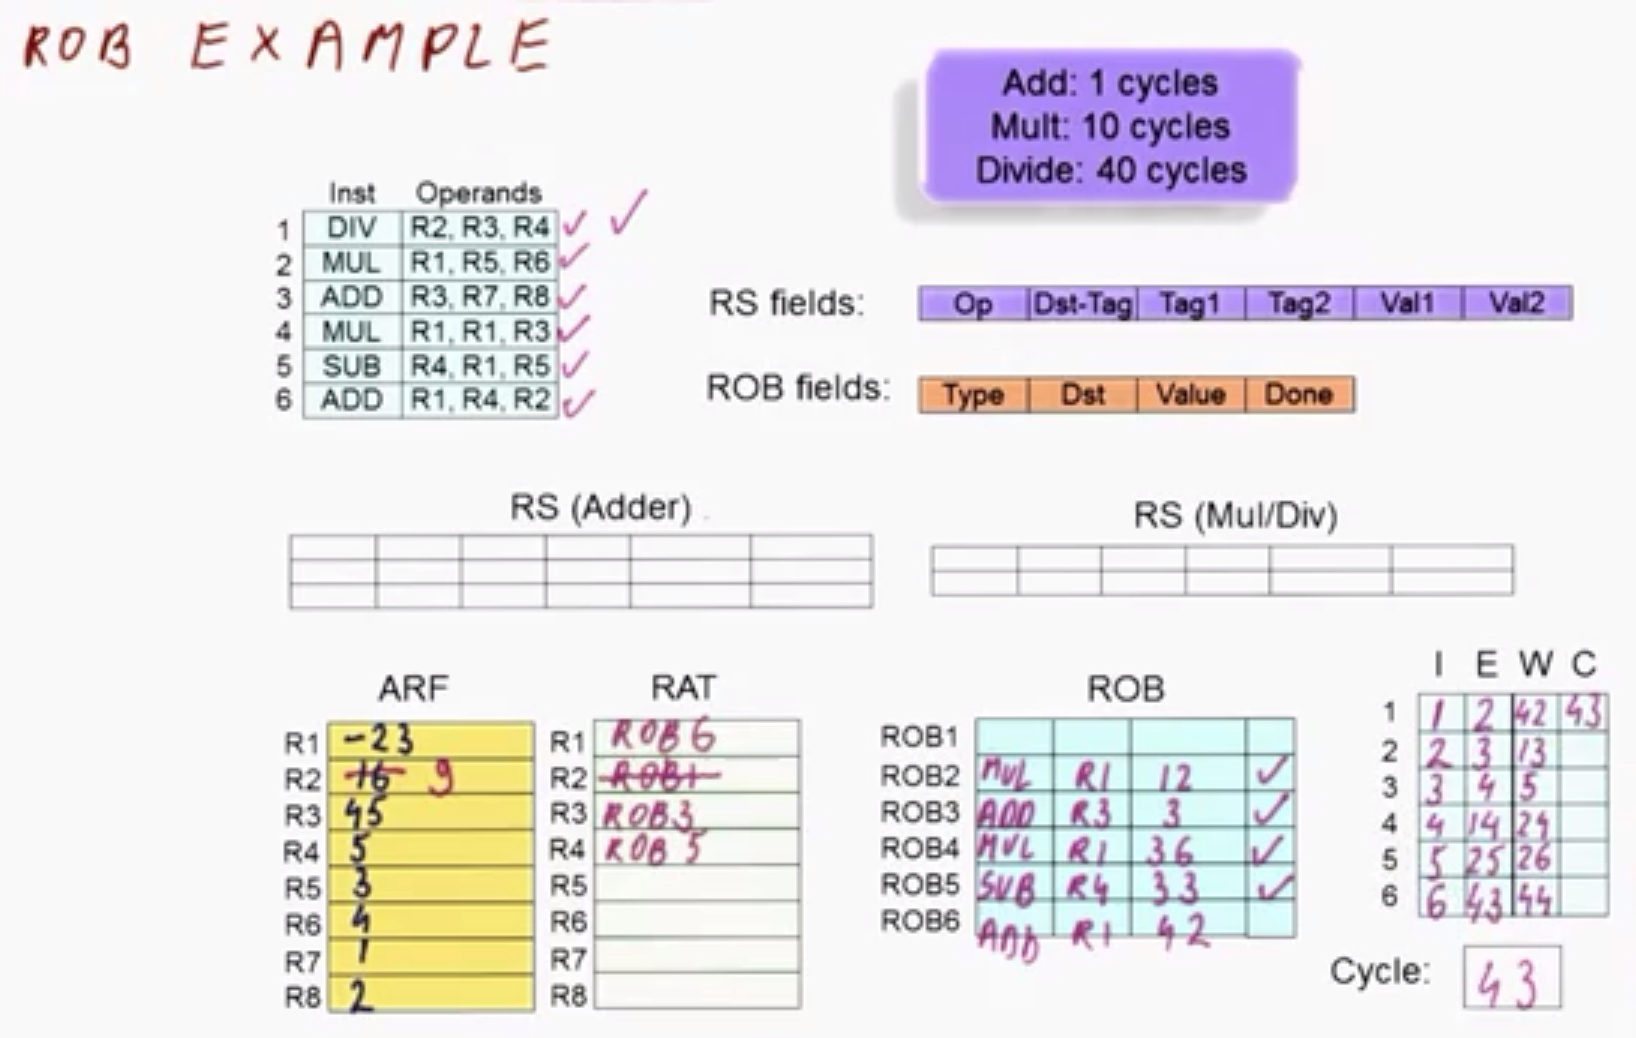 ROB EXAMPLE
Add: 1 cycles
Mult: 10 cycles
Divide: 40 cycles
Inst Operands
1 DIV R2, R3, R4 ✓ ✓
2 MUL R1, R5, R6 ✓
3 ADD R3, R7, R8 ✓
4 MUL R1, R1, R3 ✓
5 SUB R4, R1, R5 ✓
6 ADD R1, R4, R2 ✓
RS fields: Op Dst-Tag Tag1 Tag2 Val1 Val2
ROB fields: Type Dst Value Done
RS (Adder)
RS (Mul/Div)
ARF
R1 -23
R2 16 9
R3 45
R4 5
R5 3
R6 4
R7 1
R8 2
RAT
R1 ROB6
R2 ROB1
R3 ROB3
R4 ROB5
R5
R6
R7
R8
ROB
ROB1
ROB2 MUL R1 12 ✓
ROB3 ADD R3 3 ✓
ROB4 MUL R1 36 ✓
ROB5 SUB R4 33 ✓
ROB6 ADD R1 42
I E W C
1 1 2 42 43
2 2 3 13
3 3 4 5
4 4 14 24
5 5 25 26
6 6 43 44
Cycle: 43